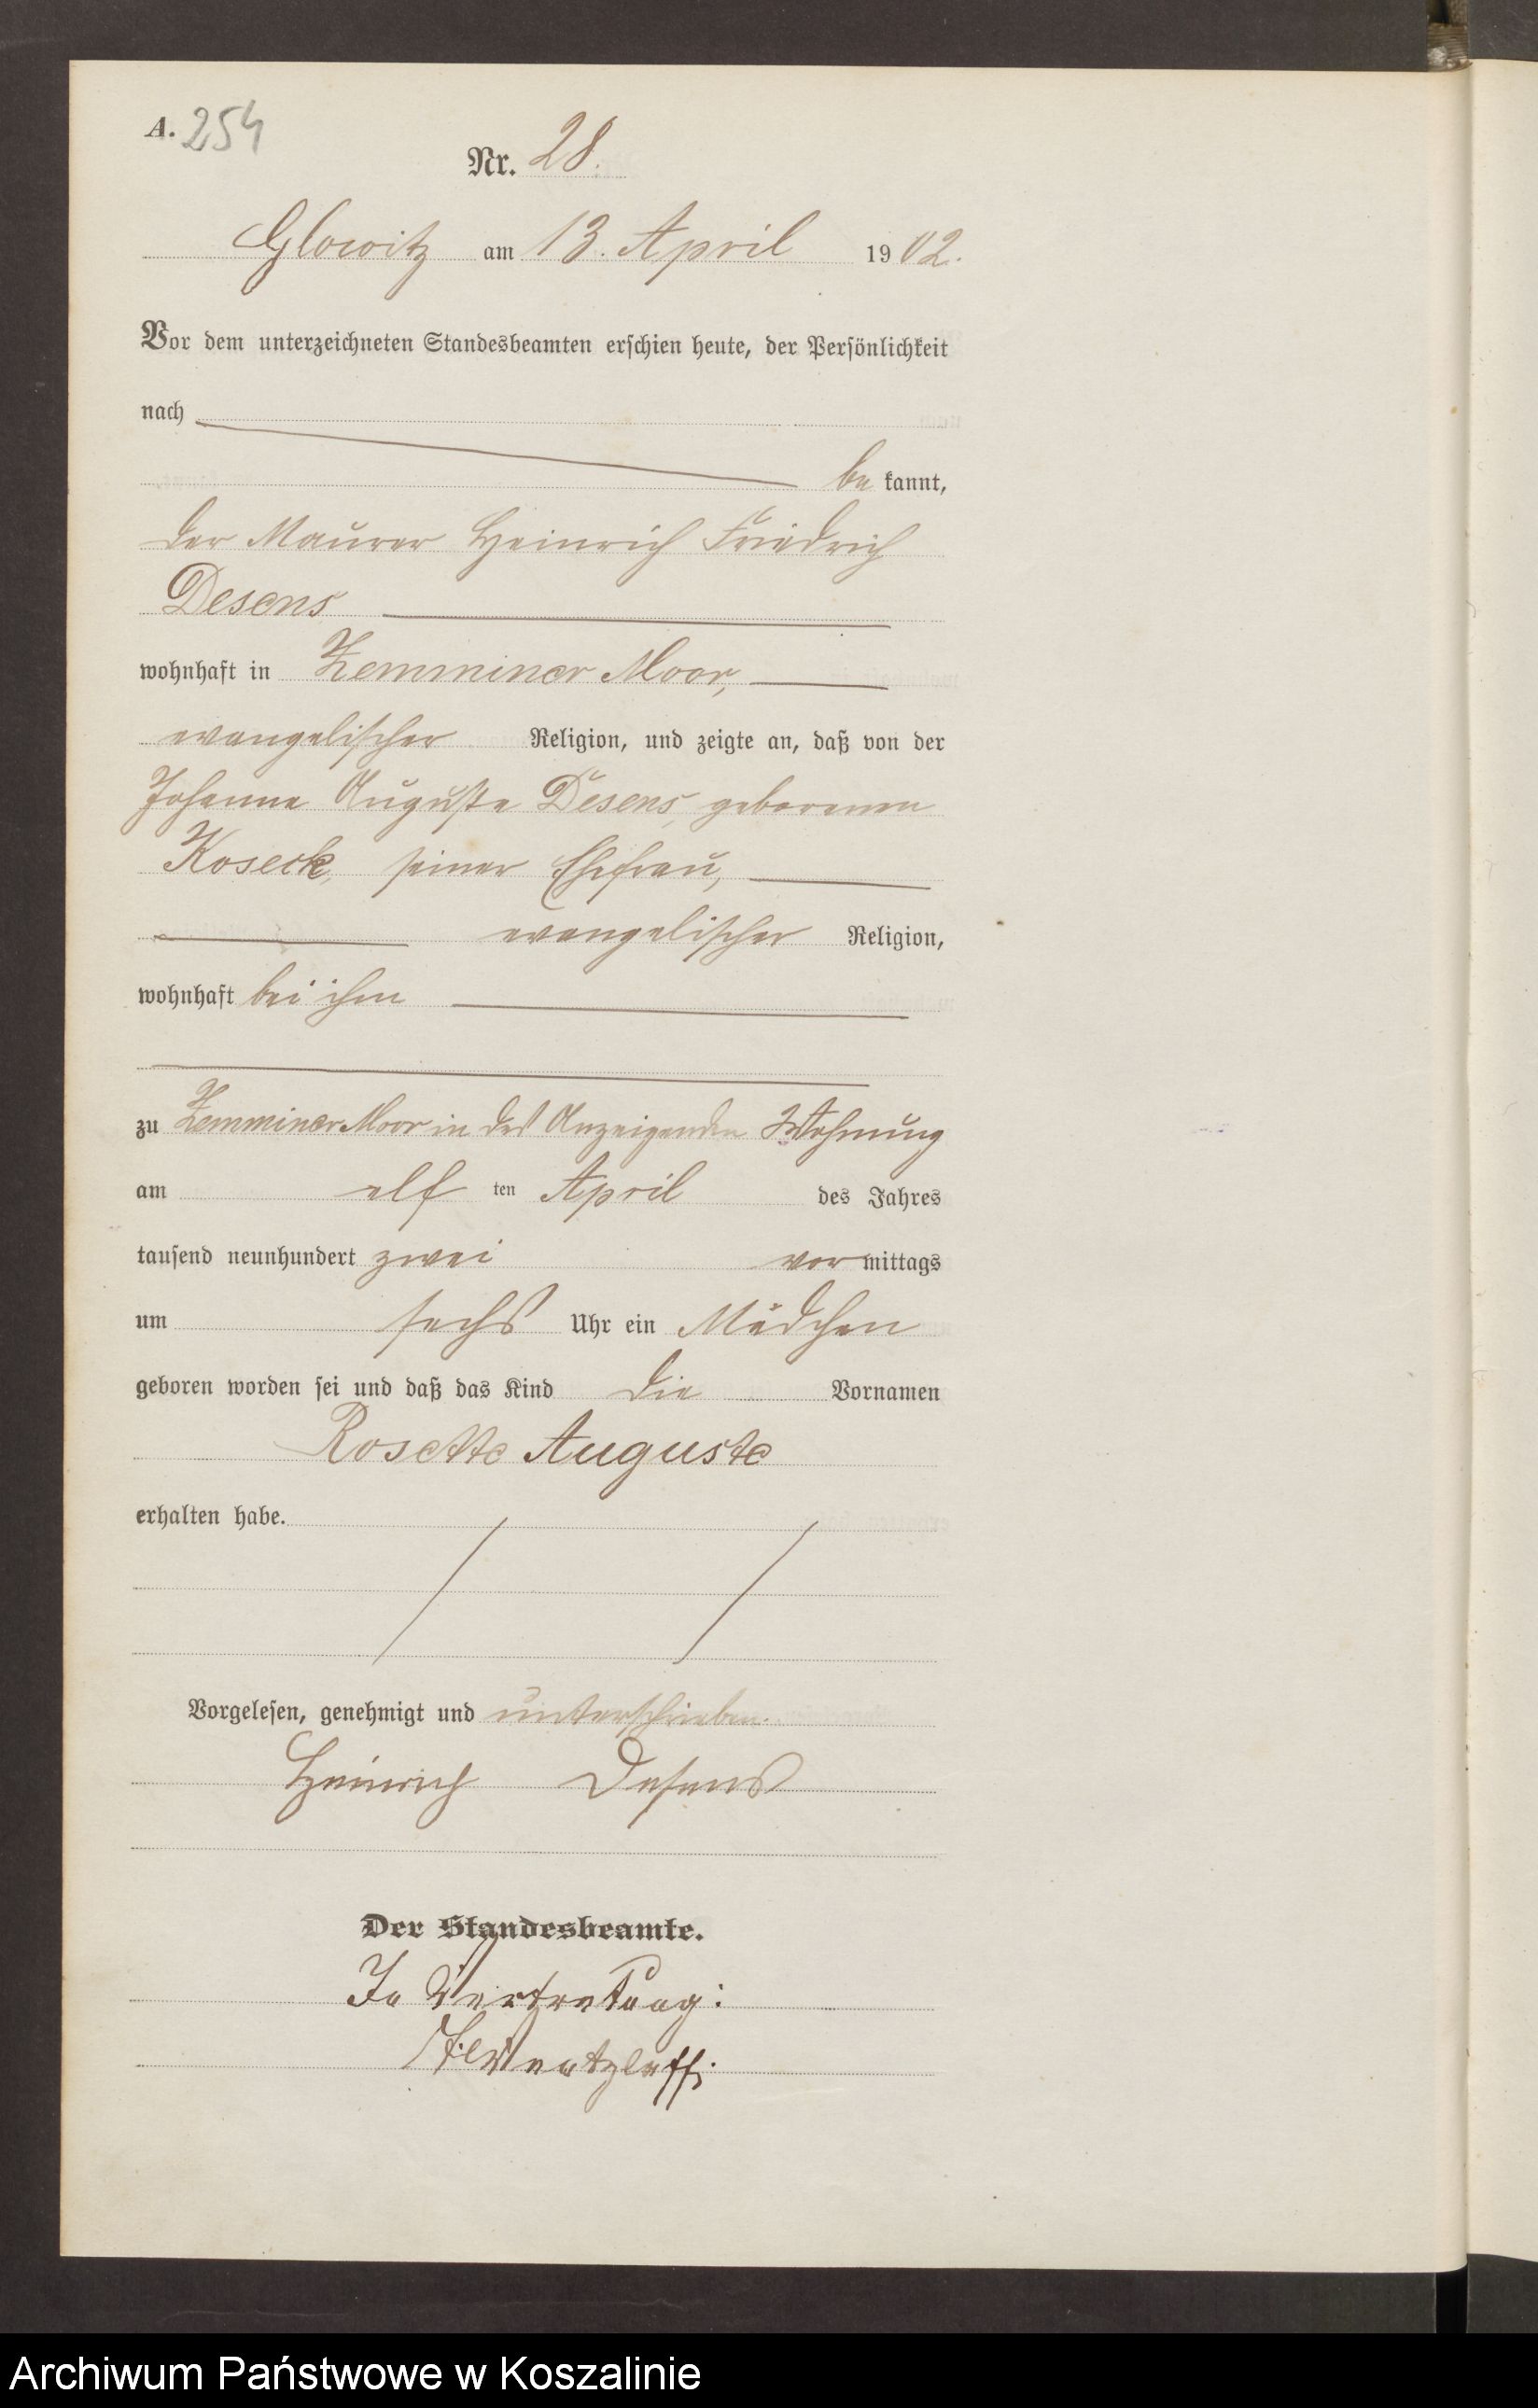 A. 254
Nr. 28.
Glowitz am 13. April 1902.
Vor dem unterzeichneten Standesbeamten erschien heute, der Persönlichkeit
nach
be kannt,
der Maurer Heinrich Friedrich
Desens
wohnhaft in Zemminer Moor,
evangelischer Religion, und zeigte an, daß von der
Johanne Auguste Desens, geborenen
Koseck, seiner Ehefrau,
evangelischer Religion,
wohnhaft bei ihm
zu Zemminer Moor in des Anzeigenden Wohnung
am elf ten April des Jahres
tausend neunhundert zwei vor mittags
um sechs Uhr ein Mädchen
geboren worden sei und daß das Kind die Vornamen
Rosette Auguste
erhalten habe.
Vorgelesen, genehmigt und unterschrieben.
Heinrich Desens
Der Standesbeamte.
In Vertretung:
Archiwum Państwowe w Koszalinie